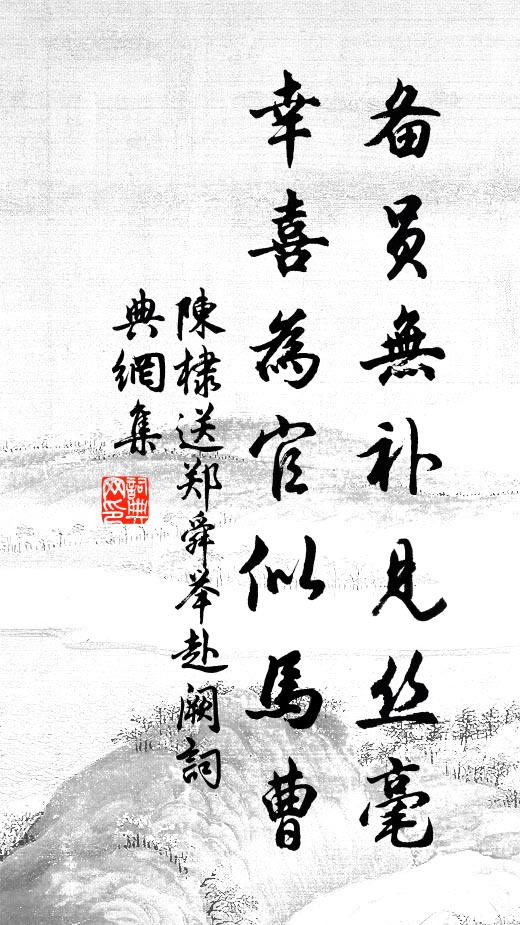 备员無补見丝毫
幸喜為官似馬曹
陳棣送郑舜举赴阙詞
典網集
詞典
网印